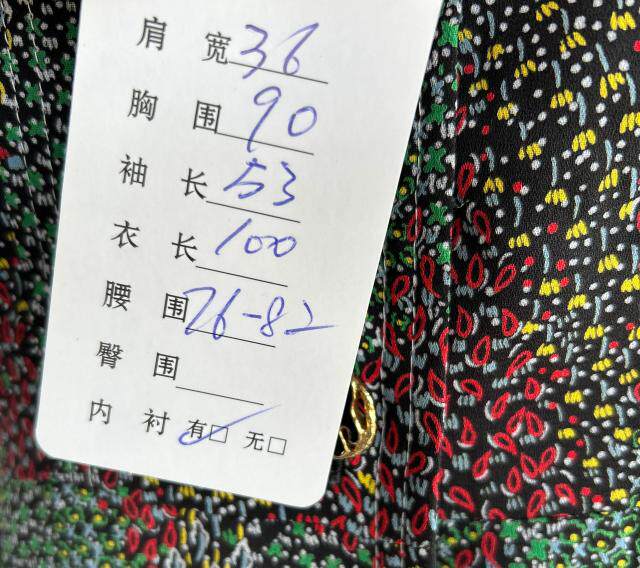 肩 宽 36
胸 围 90
袖 长 53
衣 长 100
腰 围 76-82
臀 围
内 衬 有☑ 无□